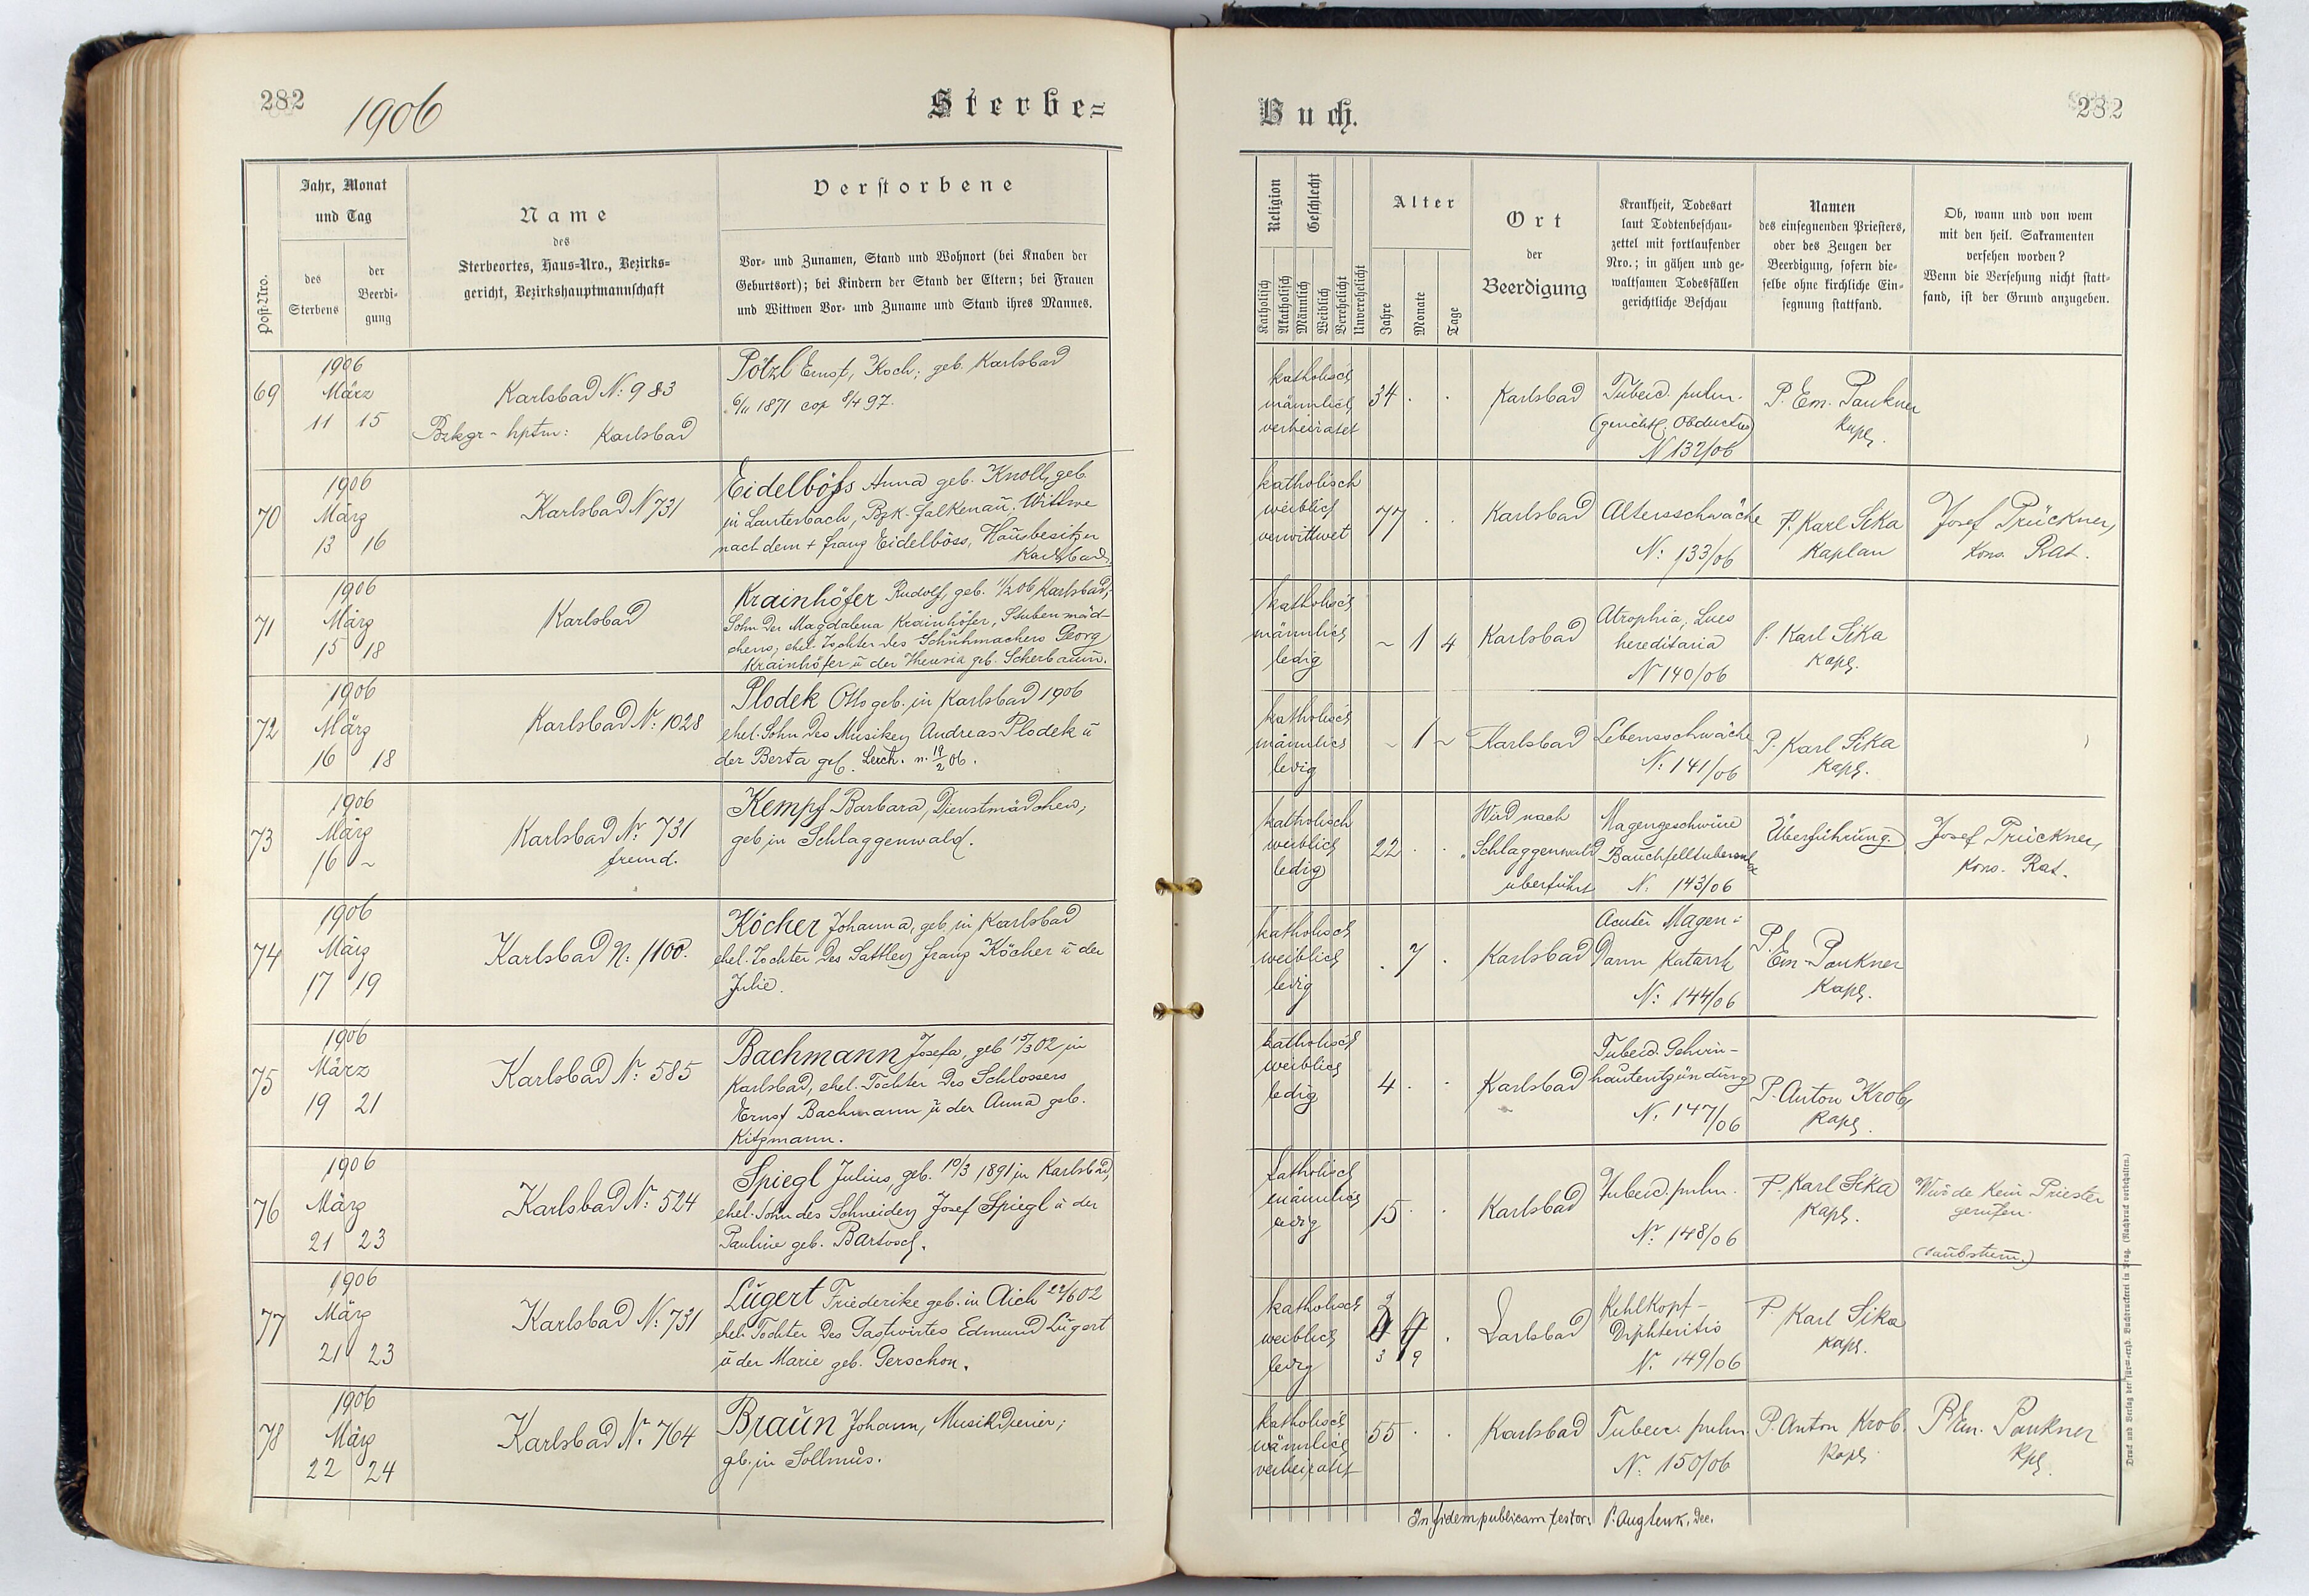 282
1906
Sterbe=
Post-Nro.
Jahr, Monat
und Tag
des
Sterbens
der
Beerdi=
gung
Name
des
Sterbeortes, Haus=Nro., Bezirks=
gericht, Bezirkshauptmannschaft
Verstorbene
Vor= und Zunamen, Stand und Wohnort (bei Knaben der
Geburtsort); bei Kindern der Stand der Eltern; bei Frauen
und Wittwen Vor= und Zuname und Stand ihres Mannes.
69
1906
März
11 15
Karlsbad N: 983
Bzkgr - hptm: Karlsbad
Pötzl Ernst, Koch; geb. Karlsbad
6/11 1871 cop 8/4 97.
70
1906
März
13 16
Karlsbad N 731
Eidelböss Anna geb. Knoll, geb.
in Lauterbach, Bzk. Falkenau, Wittwe
nach dem + Franz Eidelböss, Hausbesitzer
Karlsbad
71
1906
März
15 18
Karlsbad
Krainhöfer Rudolf, geb. 11/2 06 Karlsbad,
Sohn der Magdalena Krainhöfer, Stubenmäd-
chens, ehel. Tochter des Schuhmachers Georg
Krainhöfer u der Theresia geb. Scherbaum.
72
1906
März
16 18
Karlsbad N: 1028
Plodek Otto geb. in Karlsbad 1906
ehel. Sohn des Musikers Andreas Plodek u
der Berta geb. Lerch. n. 19/2 06.
73
1906
März
16 ~
Karlsbad N: 731
fremd.
Kempf Barbara, Dienstmädchen,
geb. in Schlaggenwald.
74
1906
März
17 19
Karlsbad N: 1100.
Köcher Johanna, geb. in Karlsbad
ehel. Tochter des Sattlers Franz Köcher u der
Julie.
75
1906
März
19 21
Karlsbad N: 585
Bachmann Josefa, geb 15/3 02 in
Karlsbad, ehel. Tochter des Schlossers
Ernst Bachmann u der Anna geb.
Kitzmann.
76
1906
März
21 23
Karlsbad N: 524
Spiegl Julius, geb. 10/3 1891 in Karlsbad,
ehel. Sohn des Schneiders Josef Spiegl u der
Pauline geb. Bartosch.
77
1906
März
21 23
Karlsbad N: 731
Lugert Friederike geb. in Aich 22/6 02
ehel. Tochter des Gastwirtes Edmund Lugert
u der Marie geb. Gerschon.
78
1906
März
22 24
Karlsbad N. 764
Braun Johann, Musikdiener;
gb. in Sollmus.
Buch.
282
Religion
Katholisch
Akatholisch
Geschlecht
Männlich
Weiblich
Verehelicht
Unverehelicht
Alter
Jahre
Monate
Tage
Ort
der
Beerdigung
Krankheit, Todesart
laut Todtenbeschau=
zettel mit fortlaufender
Nro.; in gähen und ge=
waltsamen Todesfällen
gerichtliche Beschau
Namen
des einsegnenden Priesters,
oder des Zeugen der
Beerdigung, sofern die=
selbe ohne kirchliche Ein=
segnung stattfand.
Ob, wann und von wem
mit den heil. Sakramenten
versehen worden?
Wenn die Versehung nicht statt=
fand, ist der Grund anzugeben.
katholisch
männlich
verheiratet
34 . .
Karlsbad
Tuberc. pulm.
(gerichtl. Obduction)
N 132/06
P. Em. Paukner
Kapl.
katholisch
weiblich
verwittwet
77 . .
Karlsbad
Altersschwäche
N: 133/06
P. Karl Sika
Kaplan
Josef Prückner,
Kons. Rat.
katholisch
männlich
ledig
~ 1 4
Karlsbad
Atrophia, Lues
hereditaria
N 140/06
P. Karl Sika
Kapl.
katholisch
männlich
ledig
~ 1 ~
Karlsbad
Lebensschwäche
N: 141/06
P. Karl Sika
Kapl.
katholisch
weiblich
ledig
22 . .
Wird nach
Schlaggenwald
überführt
Magengeschwüre
Bauchfelltuberculose
N: 143/06
Überführung.
Josef Prückner,
Kons. Rat.
katholisch
weiblich
ledig
. 7 .
Karlsbad
Acuter Magen-
Darm Katarrh
N: 144/06
P.
Em. Paukner
Kapl.
katholisch
weiblich
ledig
4 . .
Karlsbad
Tuberc. Gehirn-
hautentzündung
N: 147/06
P. Anton Krob,
Kapl.
katholisch
männlich
ledig
15 . .
Karlsbad
Tuberc. pulm.
N: 148/06
P. Karl Sika
Kapl.
Wurde kein Priester
gerufen.
(taubstum.)
katholisch
weiblich
ledig
3 9
Karlsbad
Kehlkopf-
Diphteritis
N. 149/06
P. Karl Sika
Kapl.
katholisch
männlich
verheiratet
55 . .
Karlsbad
Tuberc. pulm.
N: 150/06
P. Anton Krob.
Kapl.
P Em. Paukner
Kpl.
In fidem publicam testor: P. Aug
Druck und Verlag der für=erzb. Buchdruckerei in Prag. (Nachdruck vorbehalten.)